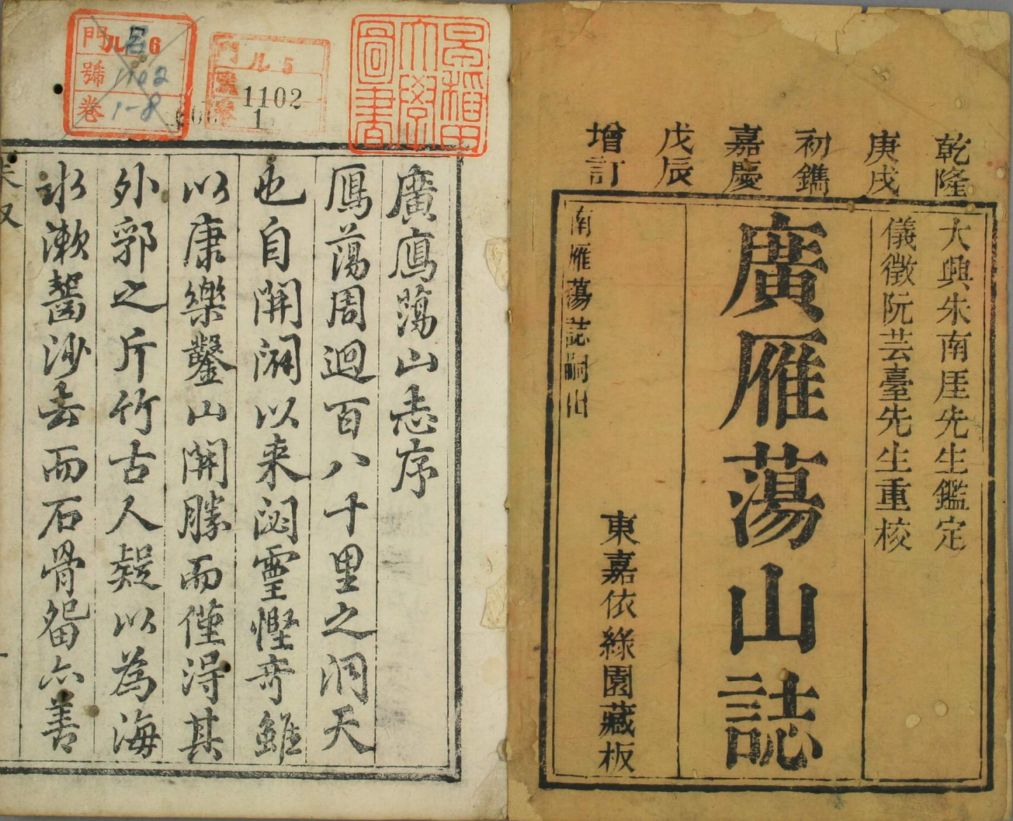 乾隆
庚戌
初鐫
嘉慶
戊辰
增訂
大興朱南厓先生鑑定
儀徵阮芸臺先生重校
廣雁蕩山誌
東嘉依綠園藏板
南雁蕩誌嗣出
早稻田
大學
圖書
門 ル 5
1102
1
門 ル 6
號 1102
卷 1-8
廣鴈蕩山志序
鴈蕩周迴百八十里之洞天
也自開闢以来閟靈慳奇雖
以康樂鑿山開勝而僅淂其
外郛之斤竹古人疑以為海
水漱齧沙去而石骨留亦善